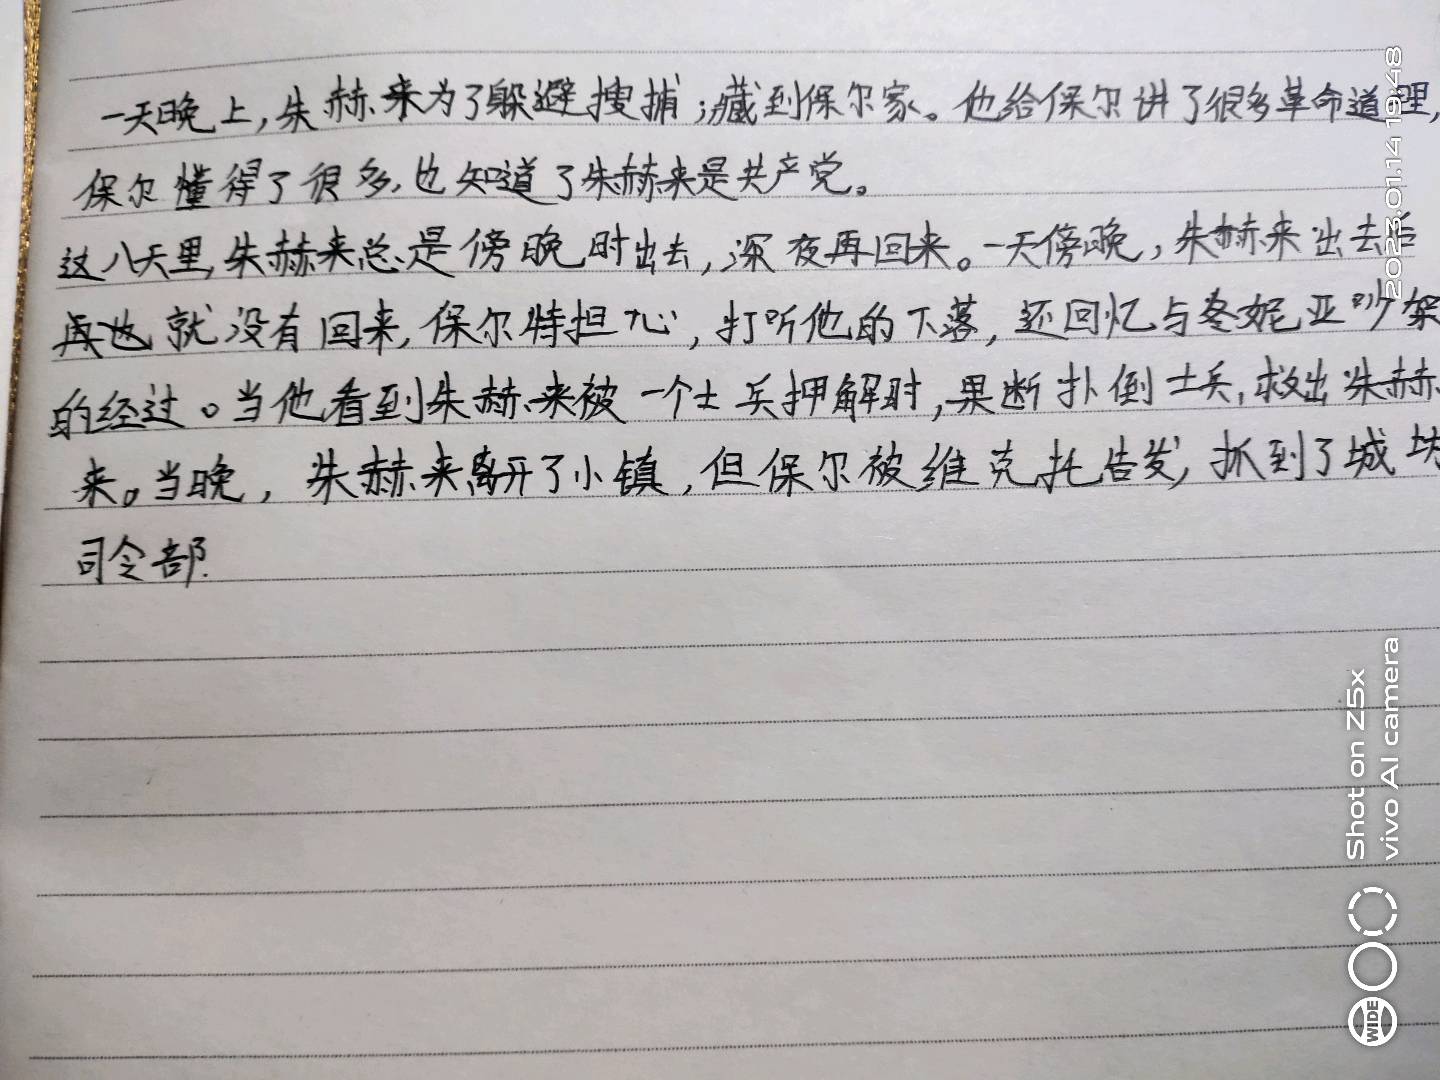 一天晚上，朱赫来为了躲避搜捕，藏到保尔家。他给保尔讲了很多革命道理，
保尔懂得了很多，也知道了朱赫来是共产党。
这八天里，朱赫来总是傍晚时出去，深夜再回来。一天傍晚，朱赫来出去后
再也就没有回来，保尔特担心，打听他的下落，还回忆与冬妮亚吵架
的经过。当他看到朱赫来被一个士兵押解时，果断扑倒士兵，救出朱赫
来。当晚，朱赫来离开了小镇，但保尔被维克托告发，抓到了城坊
司令部.
2023.01.14 19:48
Shot on Z5x
vivo AI camera
WIDE